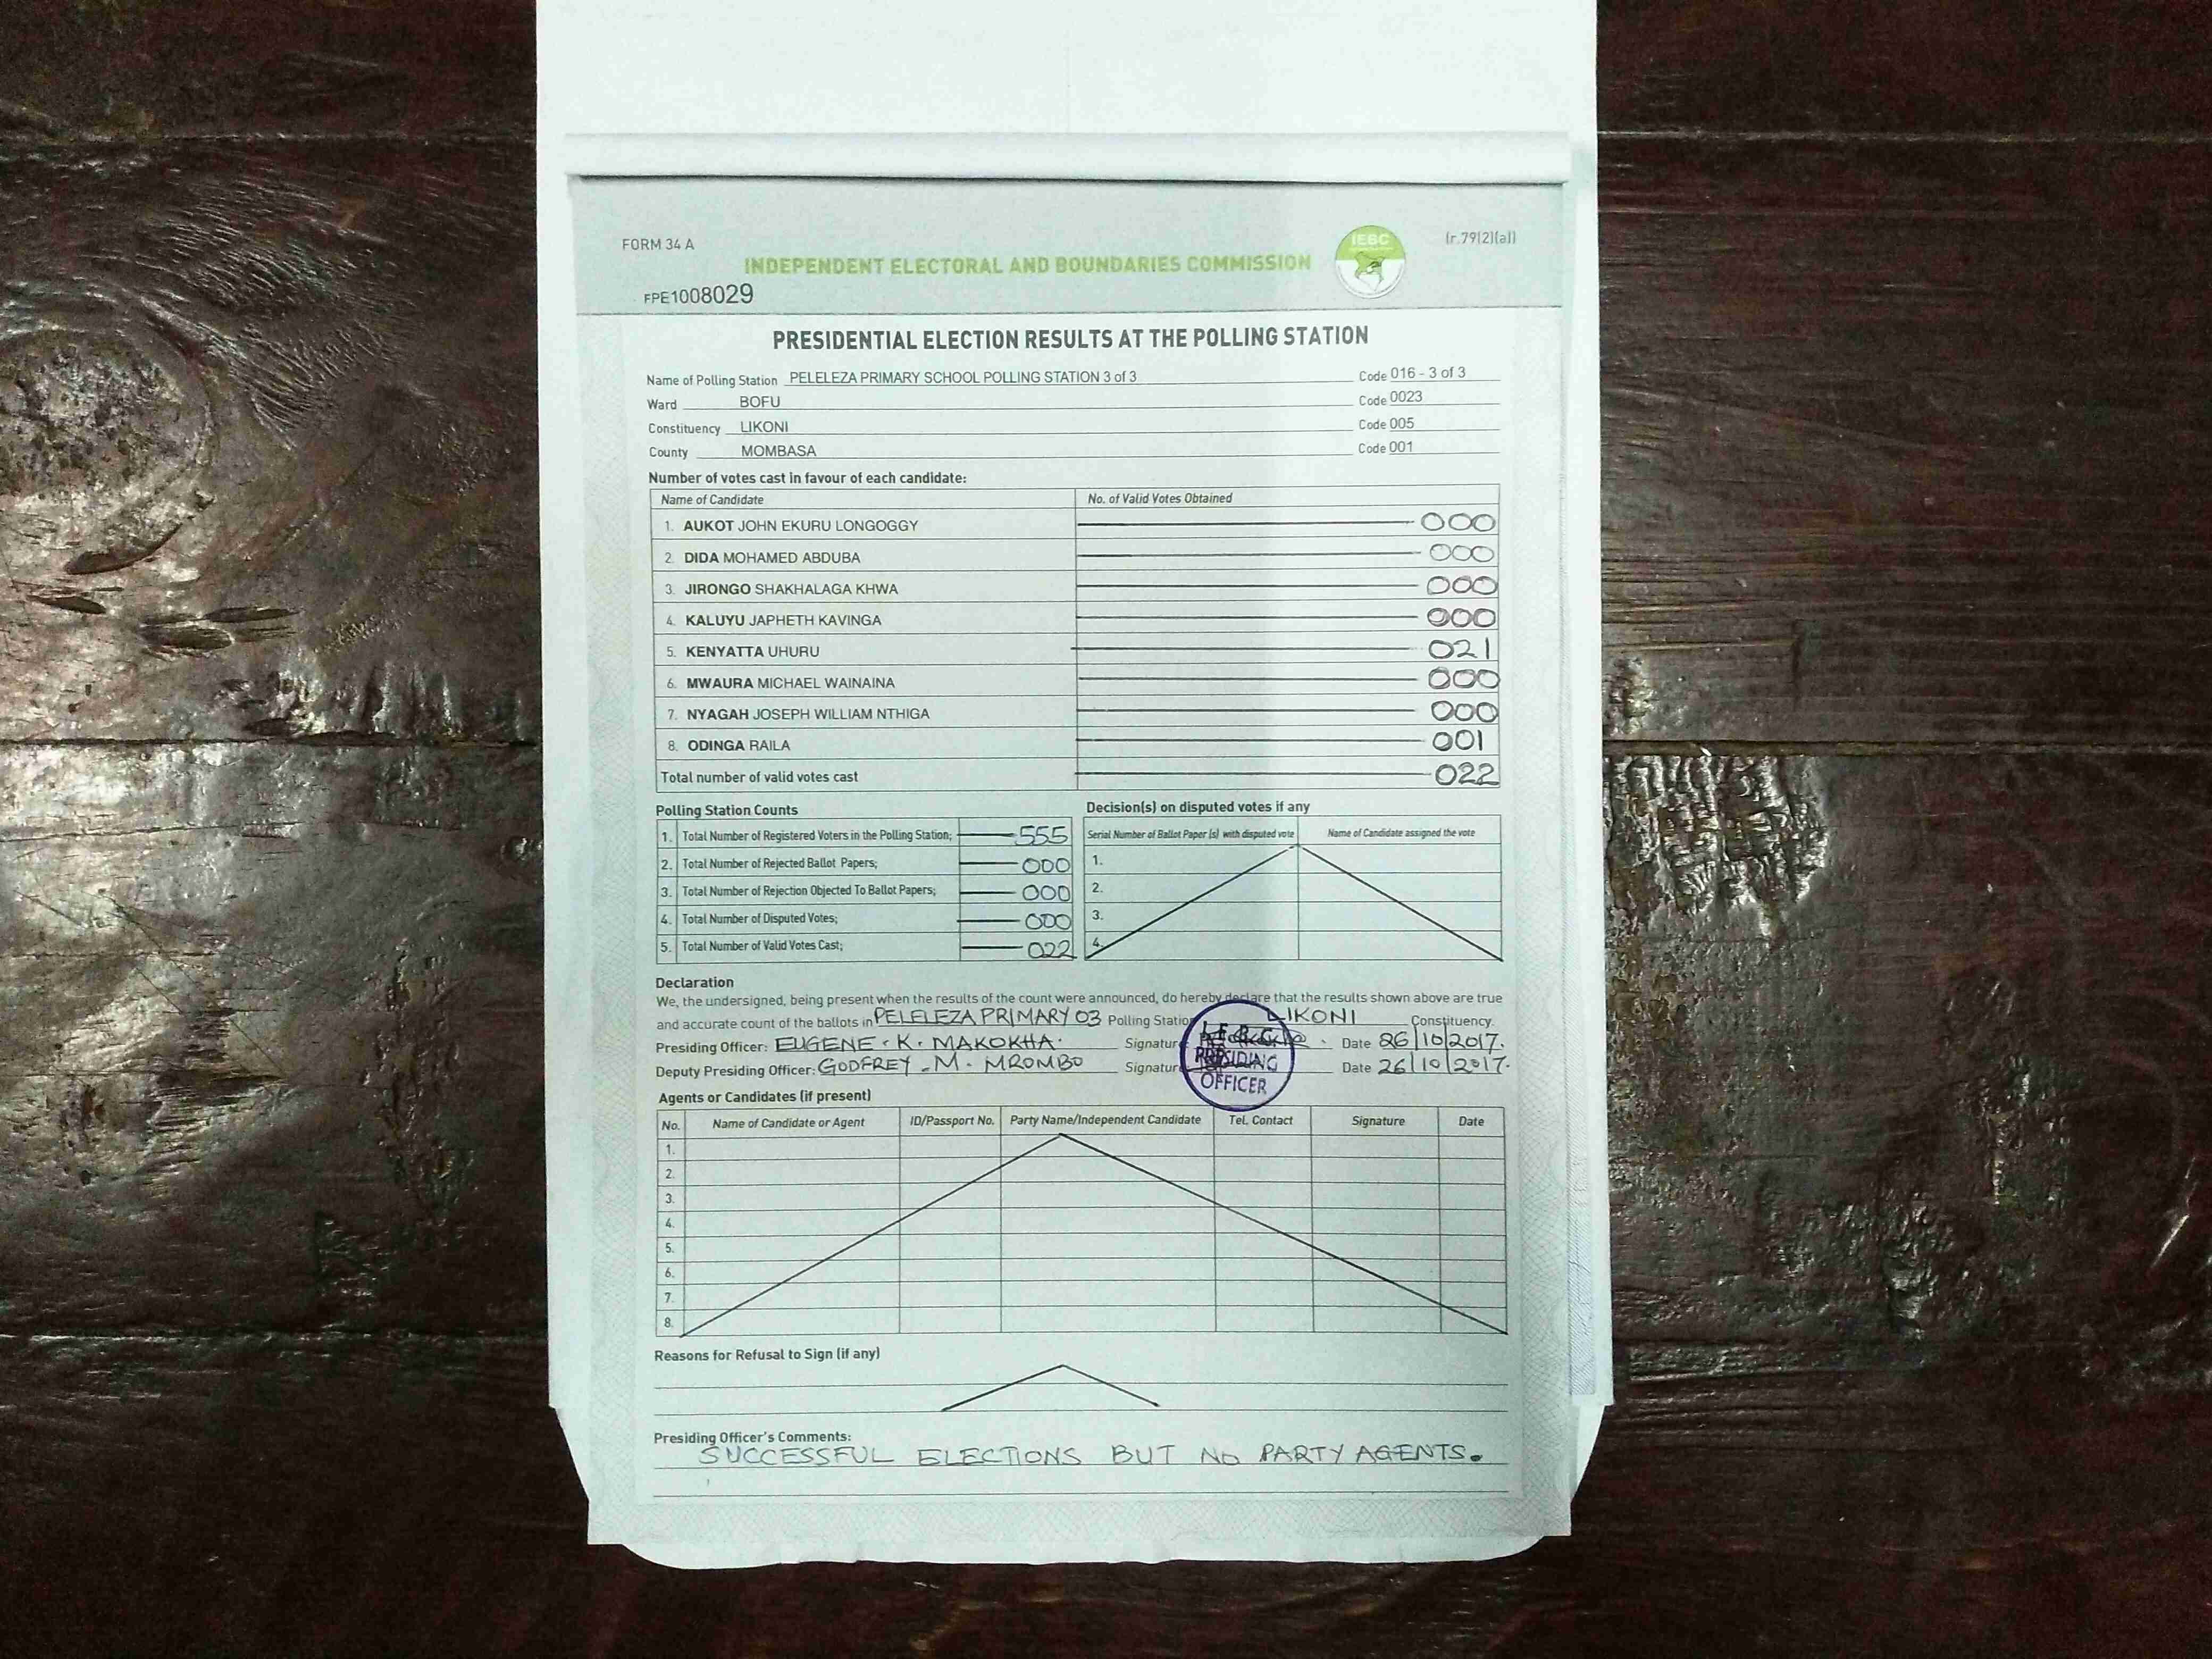 FORM 34 A
IEBC
(r.79(2)(a))
INDEPENDENT ELECTORAL AND BOUNDARIES COMMISSION
FPE1008029
PRESIDENTIAL ELECTION RESULTS AT THE POLLING STATION
Name of Polling Station PELELEZA PRIMARY SCHOOL POLLING STATION 3 of 3 Code 016 - 3 of 3
Ward BOFU Code 0023
Constituency LIKONI Code 005
County MOMBASA Code 001
Number of votes cast in favour of each candidate:
Name of Candidate No. of Valid Votes Obtained
1. AUKOT JOHN EKURU LONGOGGY 000
2. DIDA MOHAMED ABDUBA 000
3. JIRONGO SHAKHALAGA KHWA 000
4. KALUYU JAPHETH KAVINGA 000
5. KENYATTA UHURU 021
6. MWAURA MICHAEL WAINAINA 000
7. NYAGAH JOSEPH WILLIAM NTHIGA 000
8. ODINGA RAILA 001
Total number of valid votes cast 022
Polling Station Counts
1. Total Number of Registered Voters in the Polling Station; 555
2. Total Number of Rejected Ballot Papers; 000
3. Total Number of Rejection Objected To Ballot Papers; 000
4. Total Number of Disputed Votes; 000
5. Total Number of Valid Votes Cast; 022
Decision(s) on disputed votes if any
Serial Number of Ballot Paper (s) with disputed vote Name of Candidate assigned the vote
1.
2.
3.
4.
Declaration
We, the undersigned, being present when the results of the count were announced, do hereby declare that the results shown above are true
and accurate count of the ballots in PELELEZA PRIMARY 03 Polling Station LIKONI Constituency.
Presiding Officer: EUGENE . K . MAKOKHA . Signature Date 26/10/2017.
Deputy Presiding Officer: GODFREY - M . MROMBO Signature Date 26/10/2017.
I.E.B.C.
PRESIDING
OFFICER
Agents or Candidates (if present)
No. Name of Candidate or Agent ID/Passport No. Party Name/Independent Candidate Tel. Contact Signature Date
1.
2.
3.
4.
5.
6.
7.
8.
Reasons for Refusal to Sign (if any)
Presiding Officer's Comments:
SUCCESSFUL ELECTIONS BUT NO PARTY AGENTS.